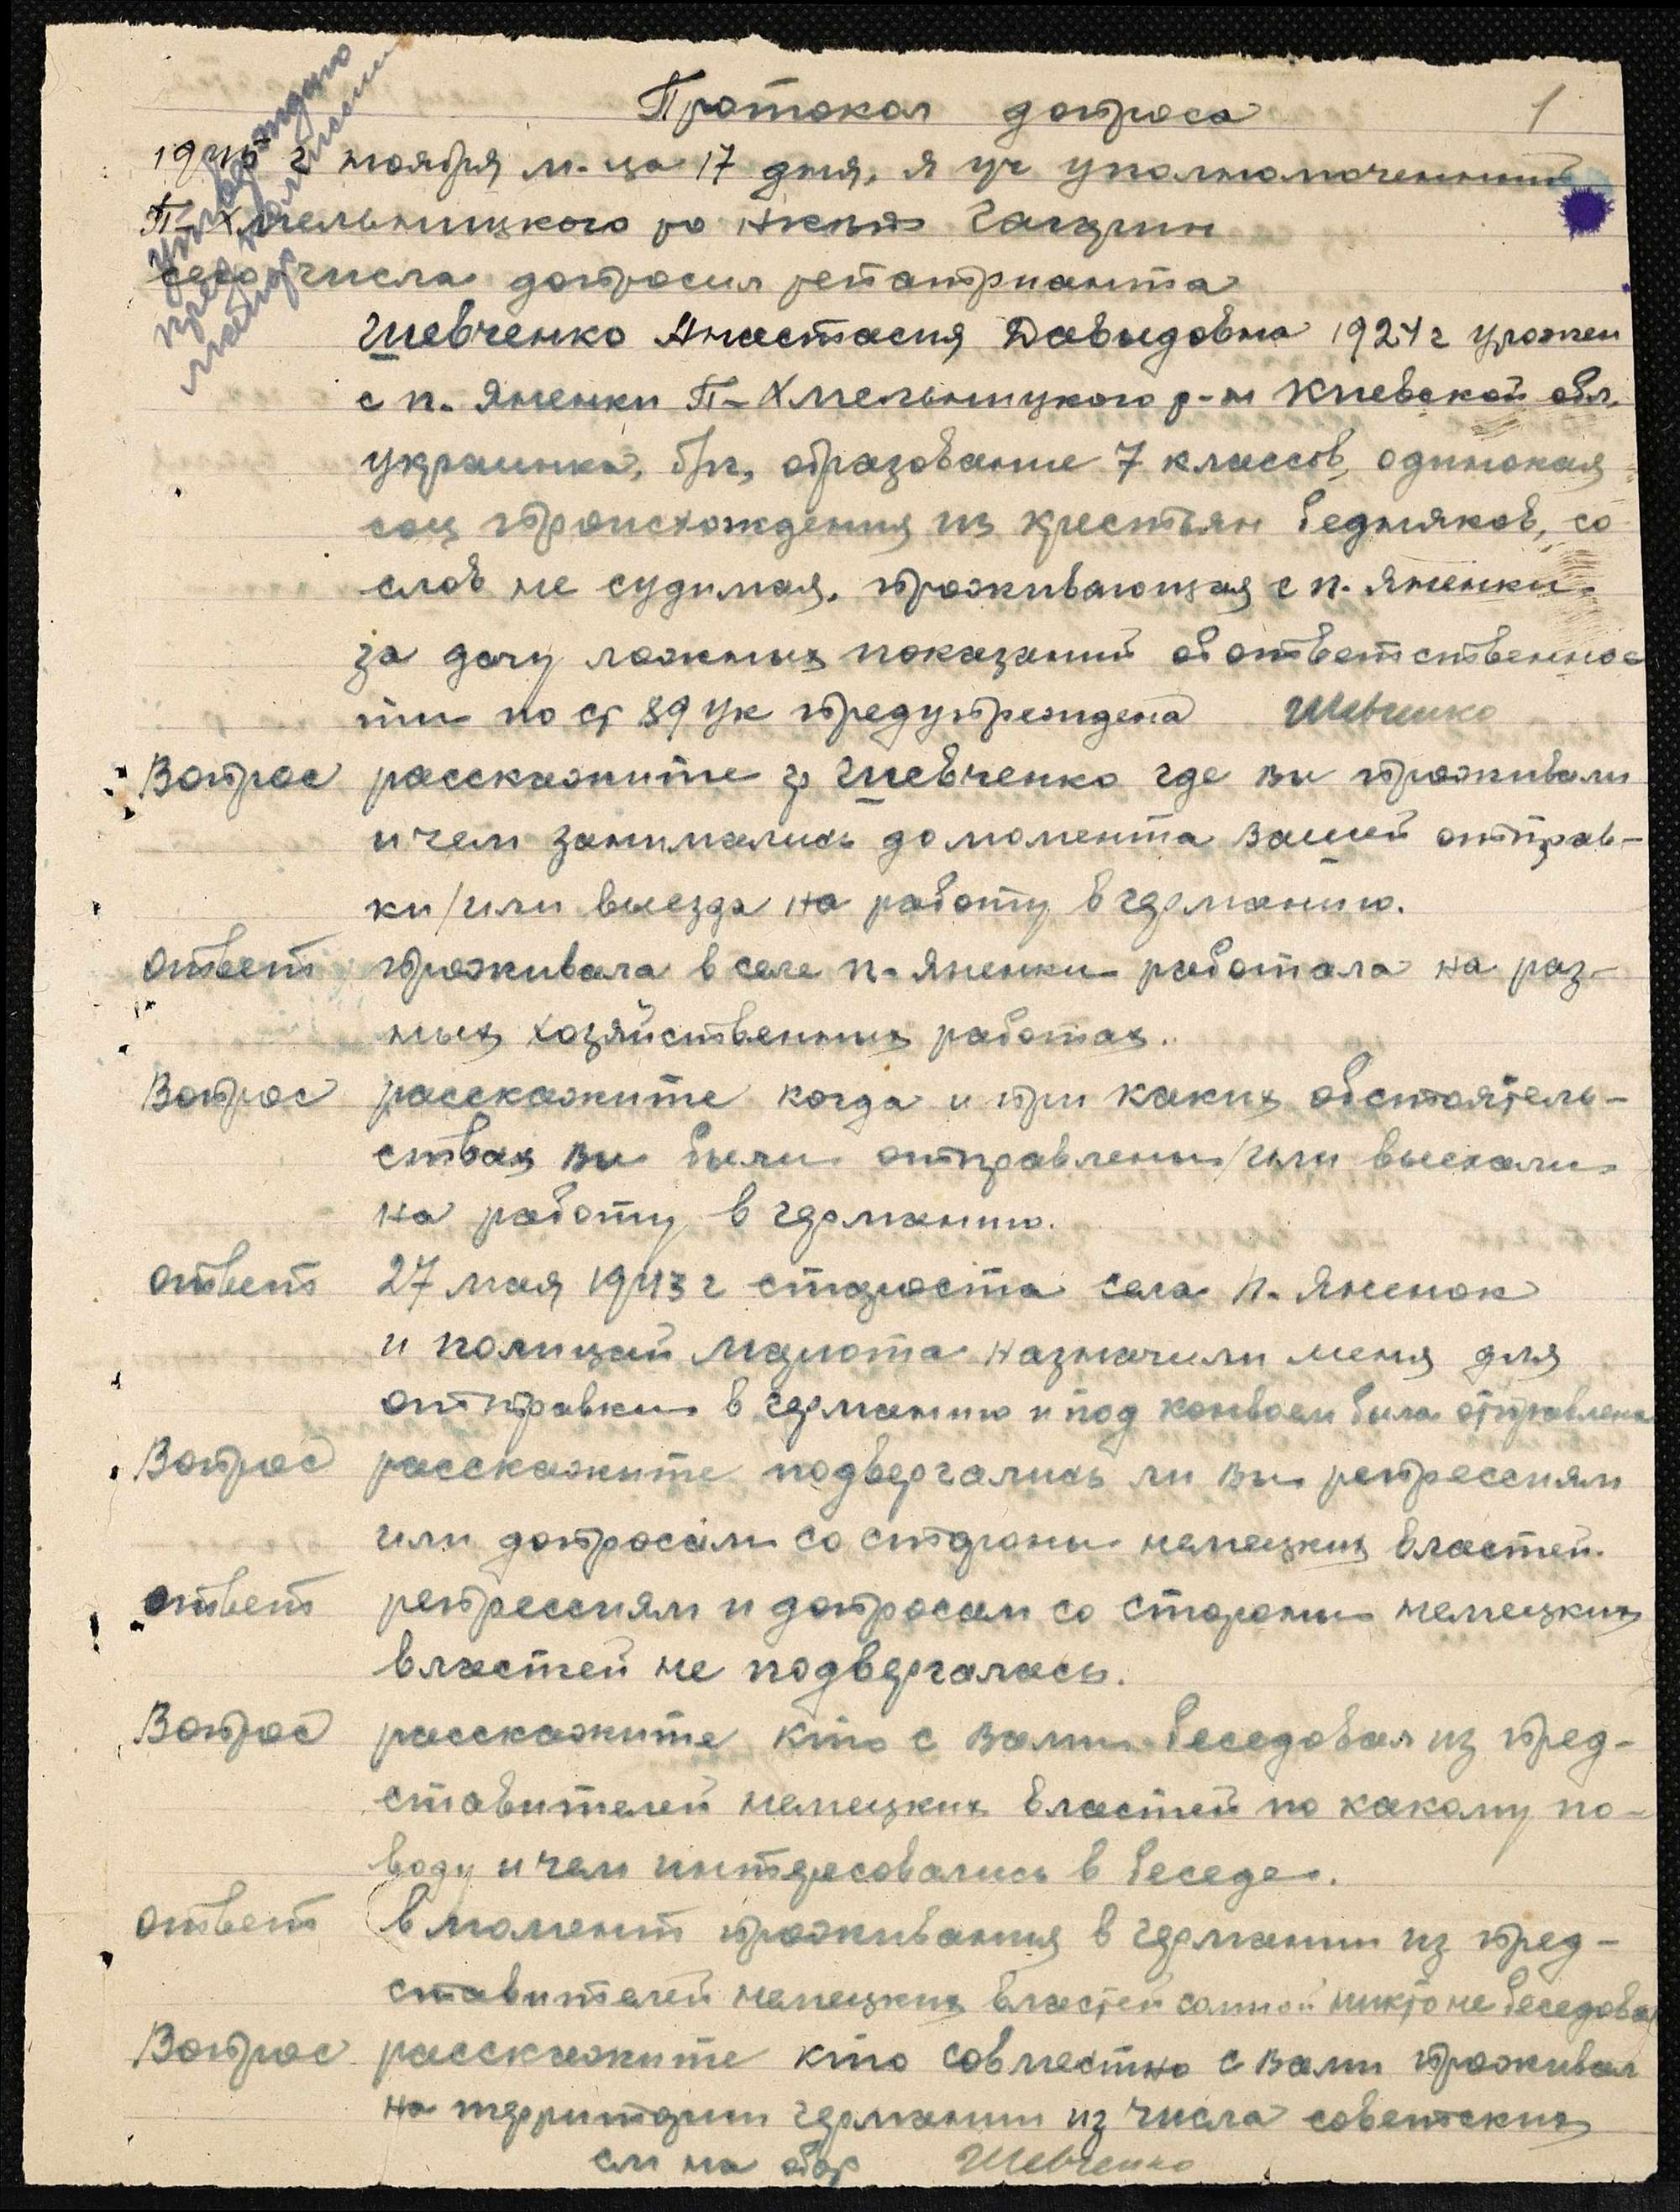 Протокол допроса
1
1945 г ноября м-ца 17 дня, я уч уполномоченный
П-Хмельницкого ро НКВД
сего числа допросил репатрианта
Шевченко Анастасия Давыдовна 1924 г урожен
с п. Яненки П-Хмельницкого р-н Киевской обл.
украинка, б/п, образование 7 классов, одинокая
соц происхождения из крестьян бедняков, со
слов не судимая, проживающая с п. Яненки.
за дачу ложных показаний об ответственнос
ти по ст 89 УК предупреждена Шевченко
Вопрос расскажите гр Шевченко где вы проживали
и чем занимались до момента вашей отправ-
ки/или выезда на работу в германию.
ответ проживала в селе п. Яненки работала на раз-
ных хозяйственных работах.
Вопрос расскажите когда и при каких обстоятель-
ствах вы были отправлены/или выехали
на работу в германию.
ответ 27 мая 1943 г староста села п. Яненок
и полицай назначили меня для
отправки в германию и под конвоем была отправлена
Вопрос расскажите подвергались ли вы репрессиям
или допросам со стороны немецких властей.
ответ репрессиям и допросам со стороны немецких
властей не подвергалась.
Вопрос расскажите кто с вами беседовал из пред-
ставителей немецких властей по какому по-
воду и чем интересовались в беседе.
ответ в момент проживания в германии из пред-
ставителей немецких властей со мной никто не беседовал
Вопрос расскажите кто совместно с вами проживал
на территории германии из числа советских
см на обор Шевченко